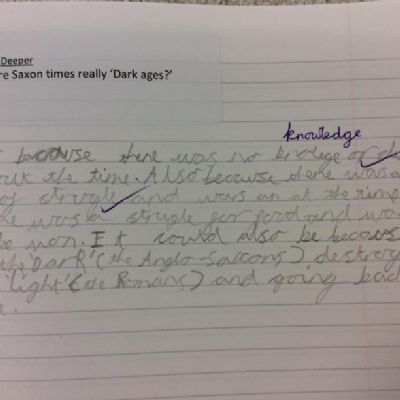 Deeper
re Saxon times really 'Dark ages?'
knowledge
because there was no knolege of
out the time. Also because there was a
of strugle and wars on at the time
was a struple for food and
be won. It could also be becaus
'Dark' (the Anglo-Saxons) destroy
light' (the Romans) and going bac